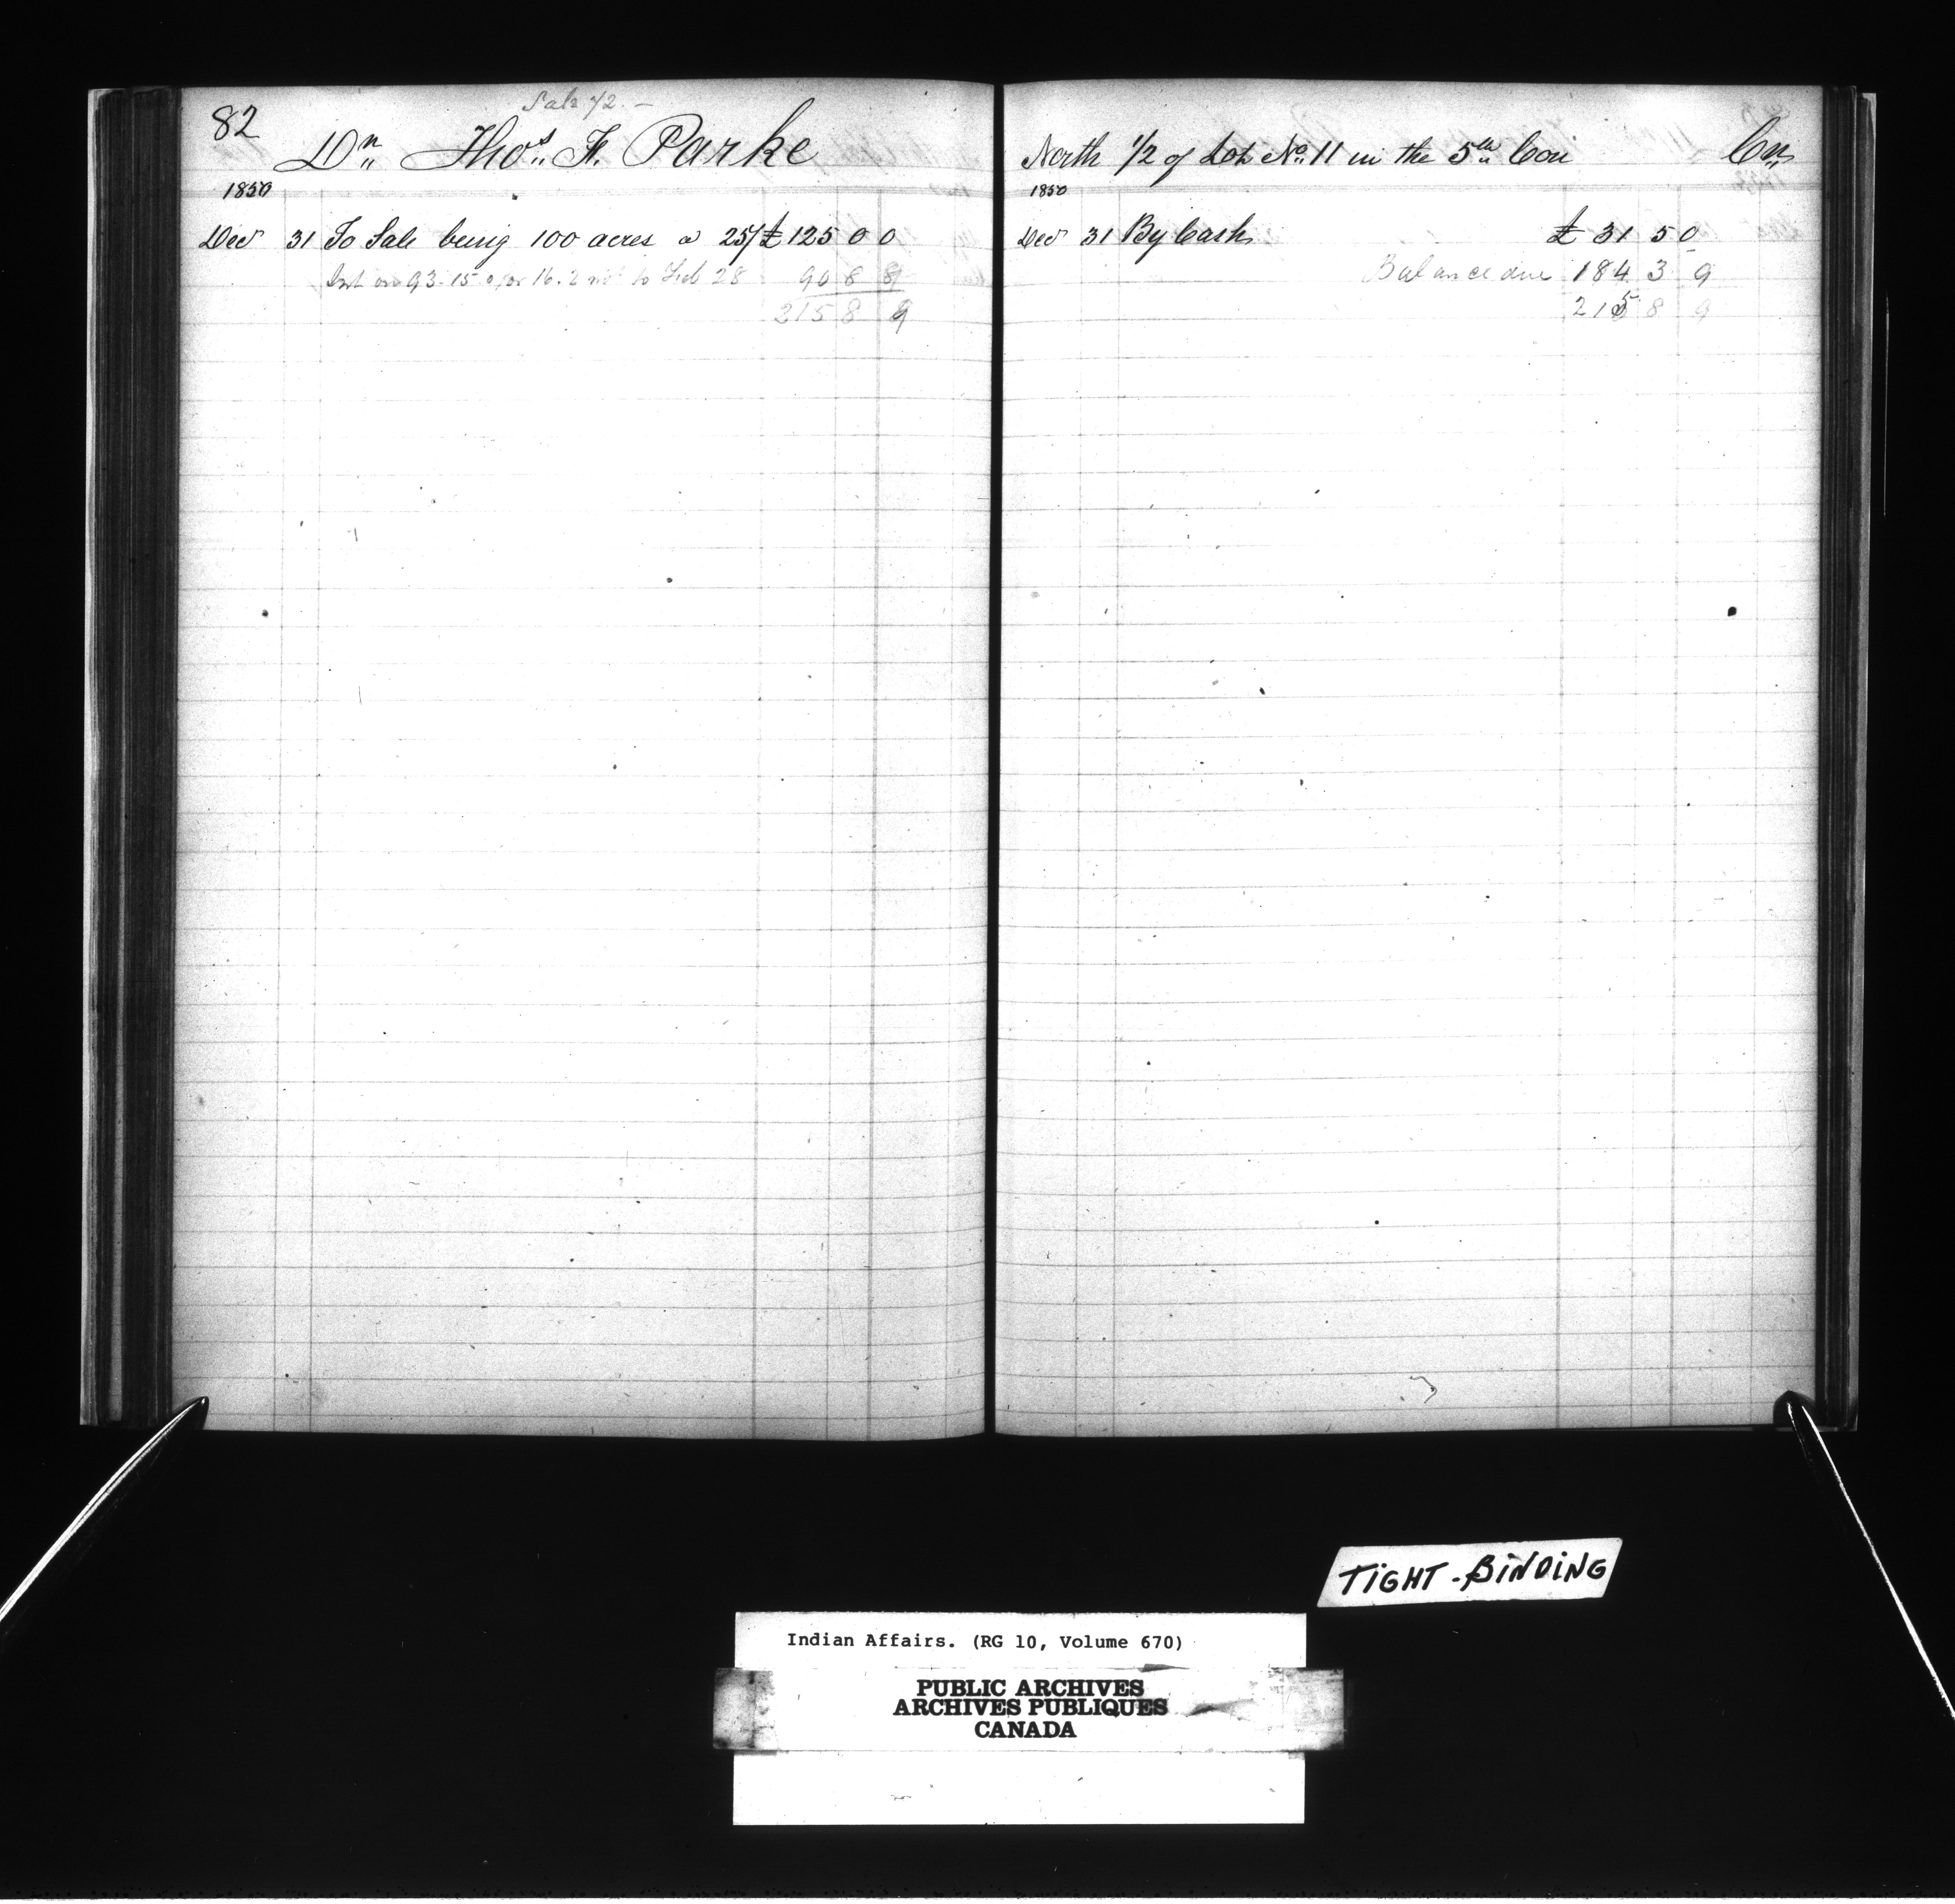 82
Sale 72. —
Dr. Thos. F. Parke
1850
Dec 31 To Sale being 100 acres @ 25/ £ 125 0 0
Int on 93.15.0 for 16.2 to Feb 28 90 8 9
215 8 9
North 1/2 of Lot No. 11 in the 5th Con Cr.
1850
Dec 31 By Cash £ 31 5 0
Balance due 184 3 9
215 8 9
TIGHT-BINDING
Indian Affairs. (RG 10, Volume 670)
PUBLIC ARCHIVES
ARCHIVES PUBLIQUES
CANADA